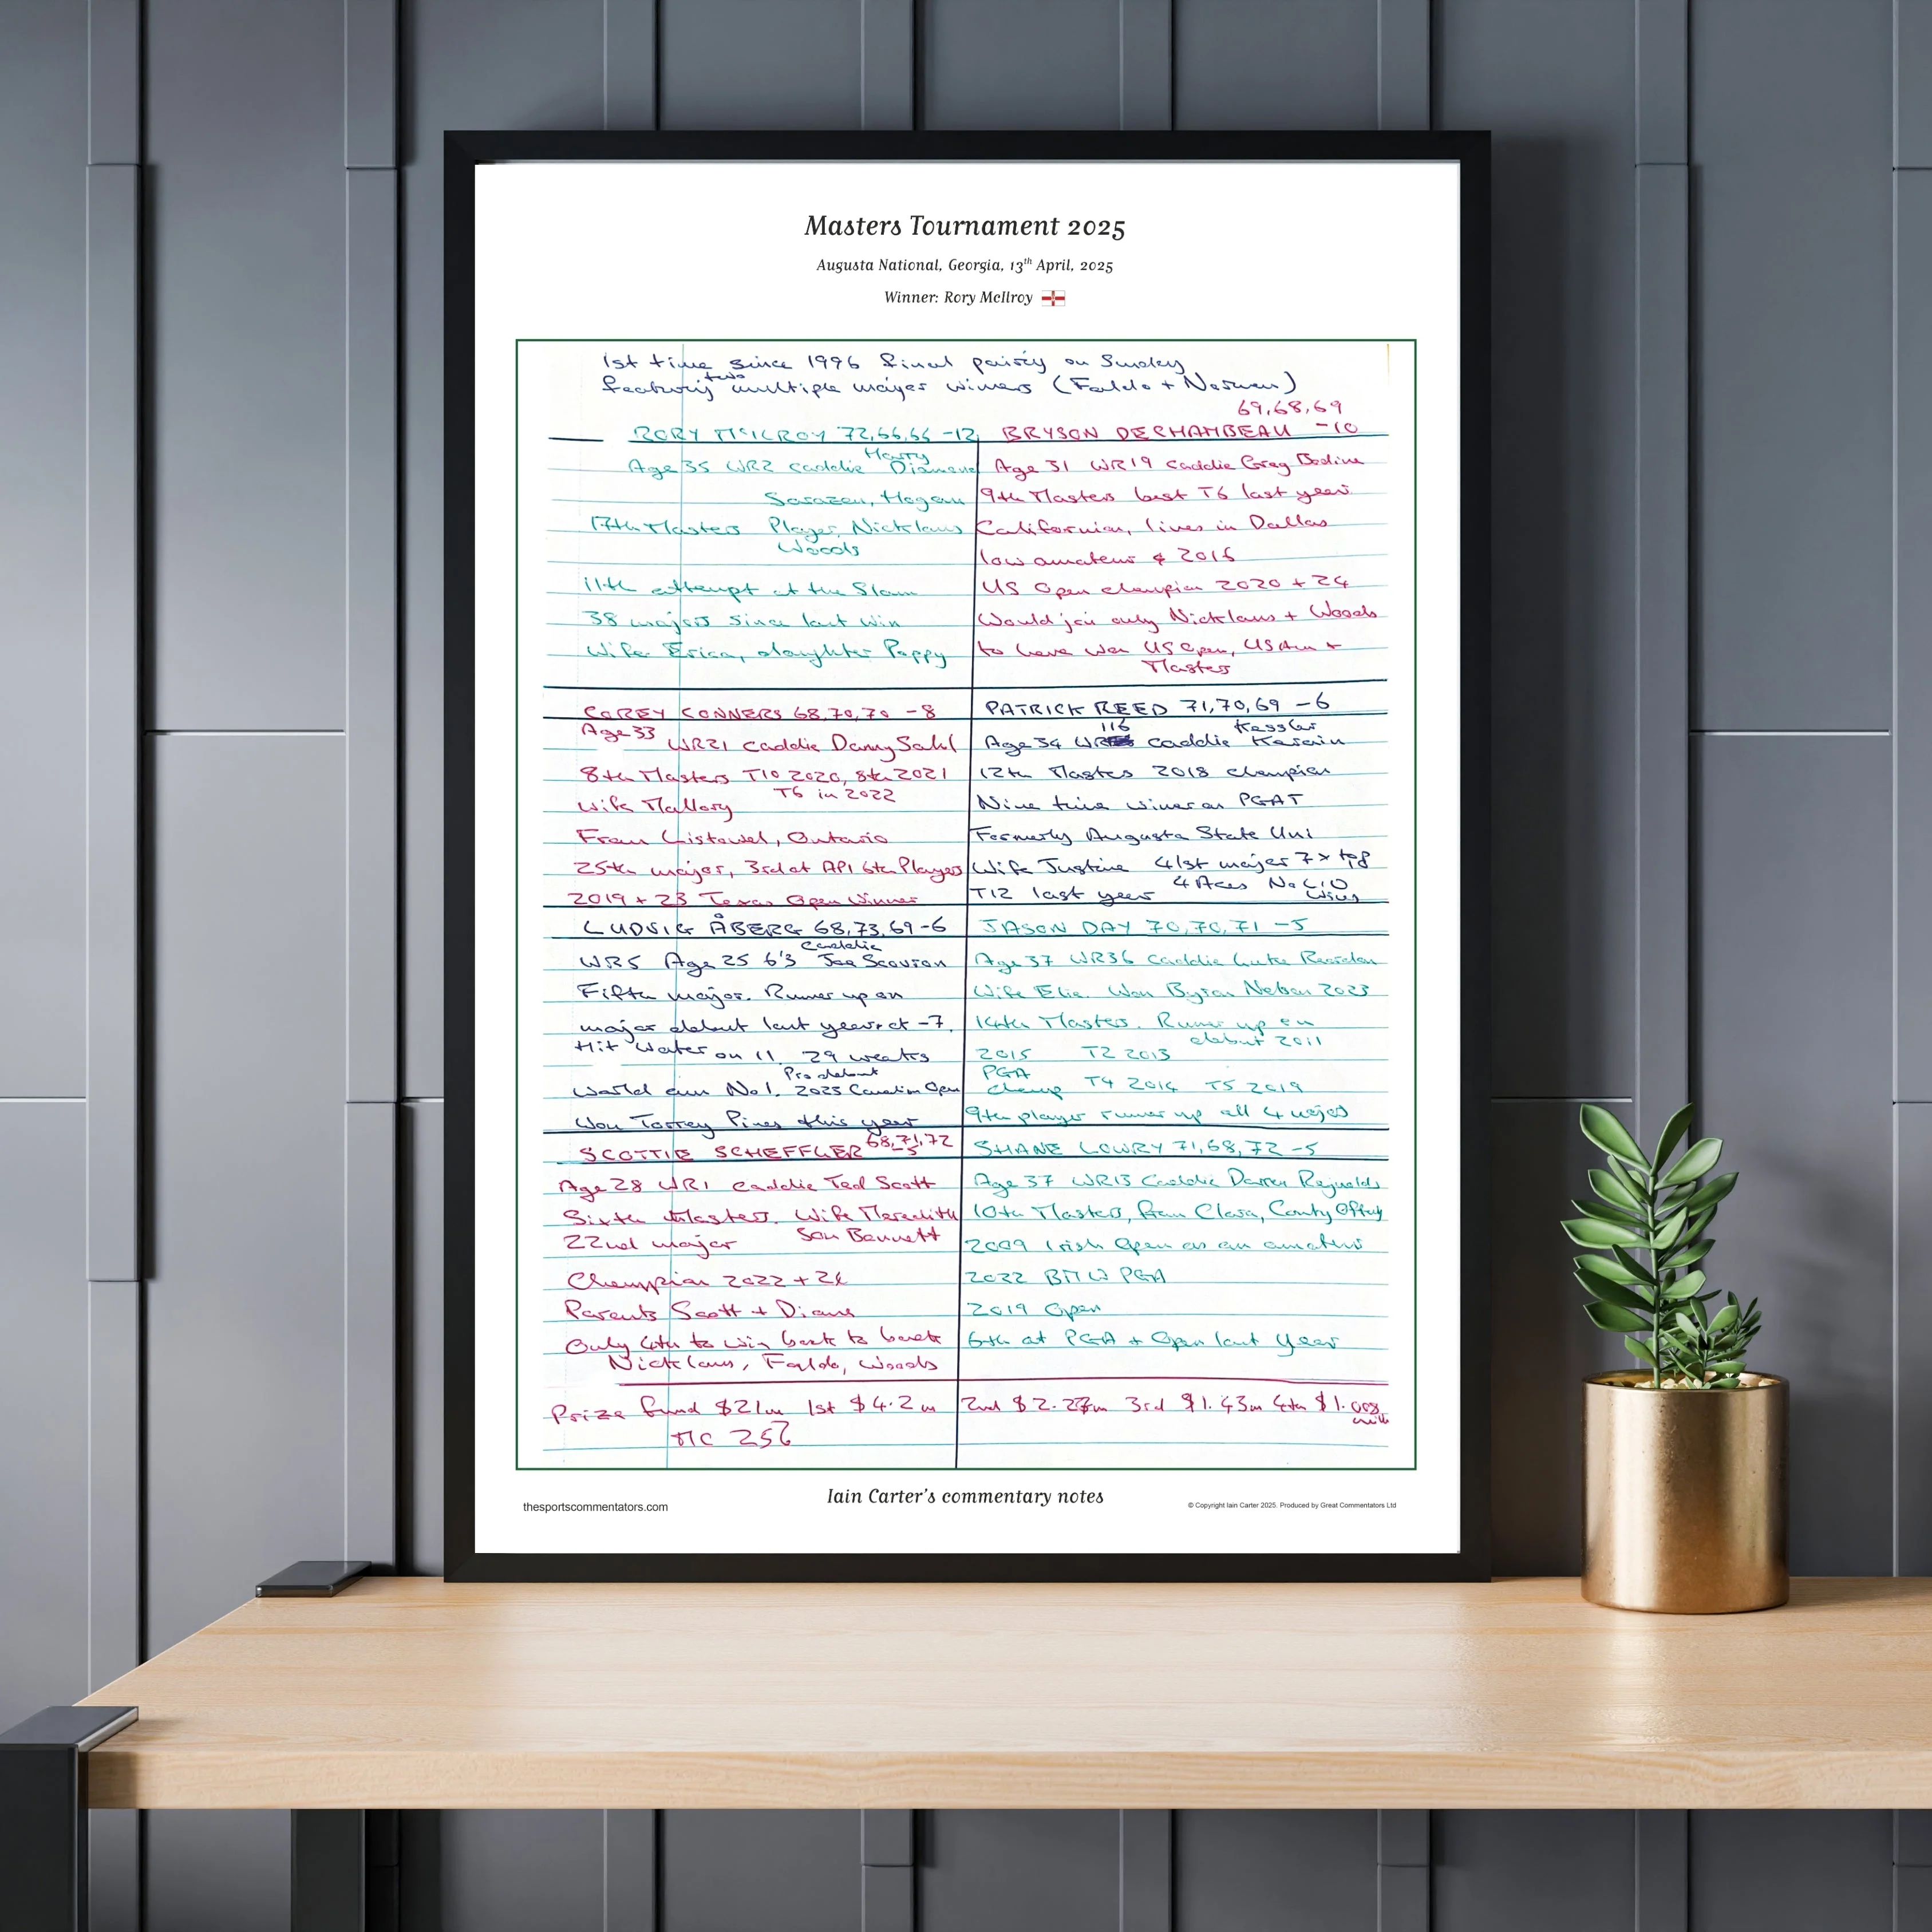 Masters Tournament 2025
Augusta National, Georgia, 13th April, 2025
Winner: Rory McIlroy
1st time since 1996 final pairing on Sunday
featuring two multiple major winners (Faldo + Norman)
RORY McILROY 72,66,66 -12
Harry
Age 35 WR2 caddie Diamond
Sarazen, Hogan
17th Masters Player, Nicklaus
Woods
11th attempt at the Slam
38 majors since last win
Wife Erica, daughter Poppy
69,68,69
BRYSON DECHAMBEAU -10
Age 31 WR19 caddie Greg Bodine
9th Masters best T6 last year
Californian, lives in Dallas
low amateur 2016
US Open champion 2020 + 24
Would join only Nicklaus + Woods
to have won US Open, US Am +
Masters
COREY CONNERS 68,70,70 -8
Age 33
WR21 caddie Danny Sahl
8th Masters T10 2020, 8th 2021
T6 in 2022
Wife Mallory
From Listowel, Ontario
25th major, 3rd at API 6th Players
2019 + 23 Texas Open Winner
PATRICK REED 71,70,69 -6
116 Kessler
Age 34 WR caddie Karain
12th Masters 2018 champion
Nine time winner on PGAT
Formerly Augusta State Uni
Wife Justine 41st major 7x top 8
T12 last year 4 Aces No LIV
wins
LUDVIG ÅBERG 68,73,69 -6
caddie
WR5 Age 25 6'3 Joe Scovron
Fifth major. Runner up on
major debut last year at -7.
Hit water on 11. 29 weeks
Pro debut
World am No 1. 2023 Canadian Open
Won Torrey Pines this year
JASON DAY 70,70,71 -5
Age 37 WR36 Caddie Luke Reardon
Wife Ellie. Won Byron Nelson 2023
14th Masters. Runner up on
debut 2011
2015 T2 2013
PGA
champ T4 2016 T5 2019
9th player runner up all 4 majors
SCOTTIE SCHEFFLER 68,71,72
-5
Age 28 WR1 caddie Ted Scott
Sixth Masters. Wife Meredith
22nd major Son Bennett
Champion 2022 + 24
Parents Scott + Diane
Only 4th to win back to back
Nicklaus, Faldo, Woods
SHANE LOWRY 71,68,72 -5
Age 37 WR13 Caddie Darren Reynolds
10th Masters, from Clara, County Offaly
2009 Irish Open as an amateur
2022 BMW PGA
2019 Open
6th at PGA + Open last year
Prize fund $21m 1st $4.2m 2nd $2.27m 3rd $1.43m 4th $1.008
mill
MC 25k
thesportscommentators.com
Iain Carter's commentary notes
© Copyright Iain Carter 2025. Produced by Great Commentators Ltd